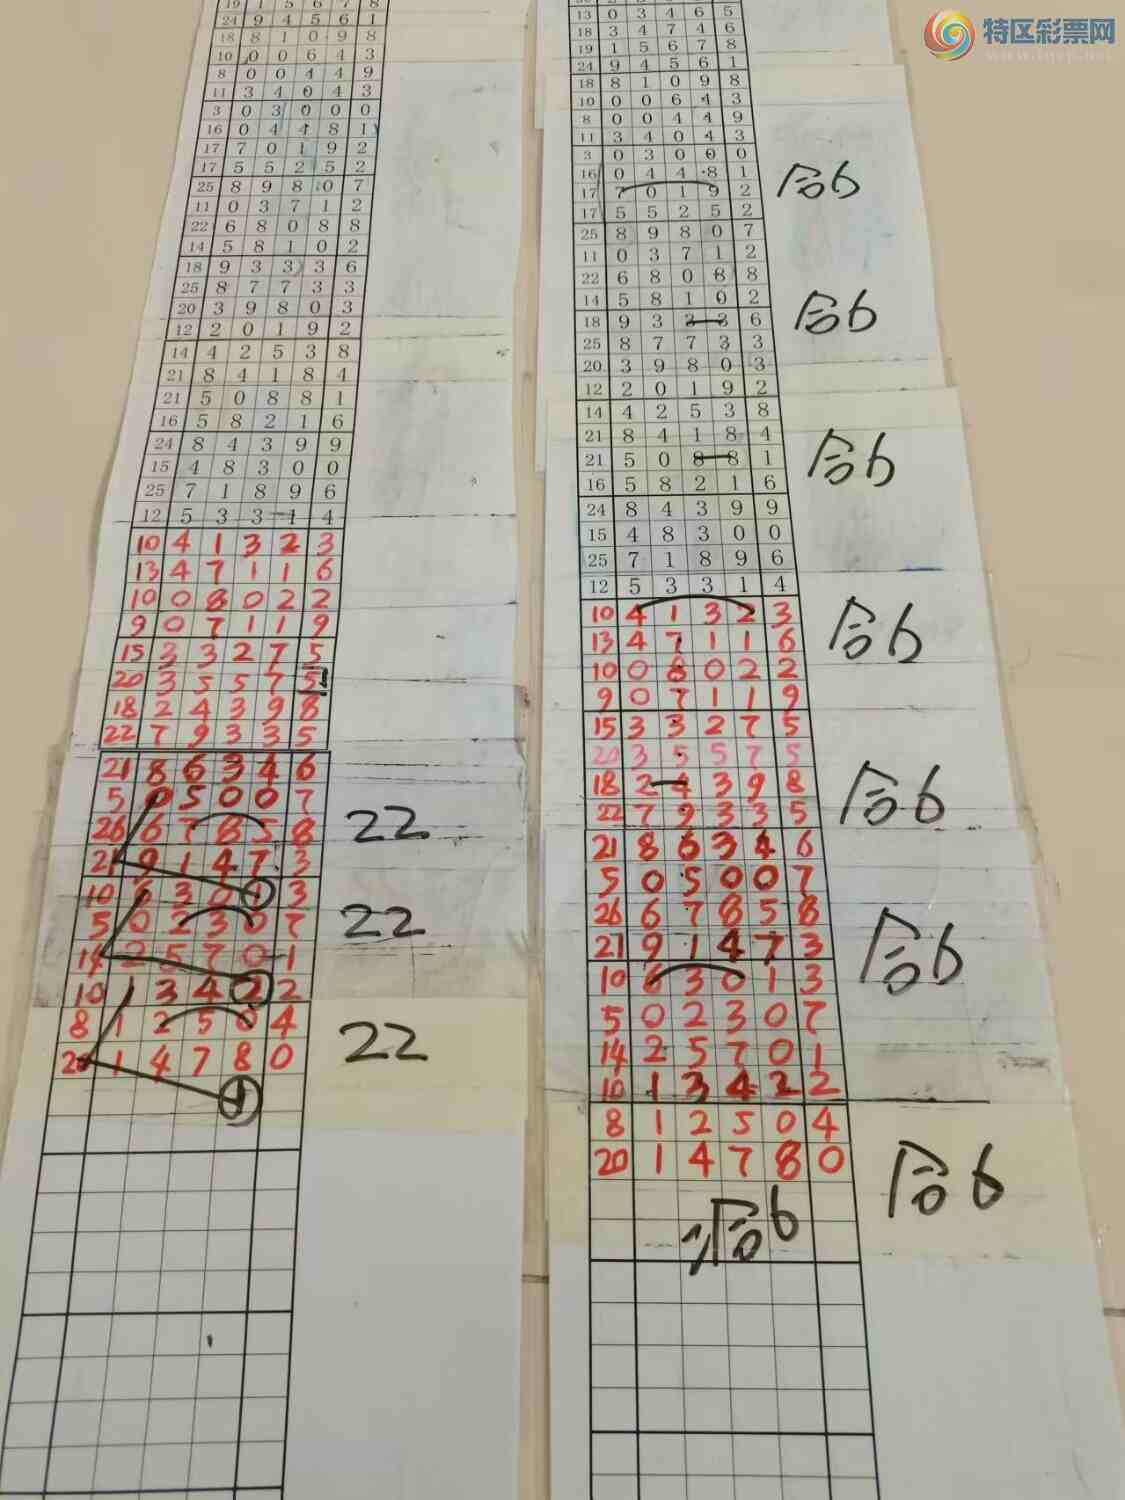 特区彩票网
19 1 5 6 7 8
24 9 4 5 6 1
18 8 1 0 9 8
10 0 0 6 4 3
8 0 0 4 4 9
11 3 4 0 4 3
3 0 3 0 0 0
16 0 4 4 8 1
17 7 0 1 9 2
17 5 5 2 5 2
25 8 9 8 0 7
11 0 3 7 1 2
22 6 8 0 8 8
14 5 8 1 0 2
18 9 3 3 3 6
25 8 7 7 3 3
20 3 9 8 0 3
12 2 0 1 9 2
14 4 2 5 3 8
21 8 4 1 8 4
21 5 0 8 8 1
16 5 8 2 1 6
24 8 4 3 9 9
15 4 8 3 0 0
25 7 1 8 9 6
12 5 3 3 1 4
10 4 1 3 2 3
13 4 7 1 1 6
10 0 8 0 2 2
9 0 7 1 1 9
15 3 3 2 7 5
20 3 5 5 7 5
18 2 4 3 9 8
22 7 9 3 3 5
21 8 6 3 4 6
5 0 5 0 0 7
26 6 7 8 5 8 22
21 9 1 4 7 3
10 6 3 0 1 3
5 0 2 3 0 7 22
14 2 5 7 0 1
10 1 3 4 2 2
8 1 2 5 0 4 22
20 1 4 7 8 0
13 0 3 4 6 5
18 3 4 7 4 6
19 1 5 6 7 8
24 9 4 5 6 1
18 8 1 0 9 8
10 0 0 6 4 3
8 0 0 4 4 9
11 3 4 0 4 3
3 0 3 0 0 0
16 0 4 4 8 1
17 7 0 1 9 2 合6
17 5 5 2 5 2
25 8 9 8 0 7
11 0 3 7 1 2
22 6 8 0 8 8
14 5 8 1 0 2
18 9 3 3 3 6 合6
25 8 7 7 3 3
20 3 9 8 0 3
12 2 0 1 9 2
14 4 2 5 3 8
21 8 4 1 8 4
21 5 0 8 8 1 合6
16 5 8 2 1 6
24 8 4 3 9 9
15 4 8 3 0 0
25 7 1 8 9 6
12 5 3 3 1 4
10 4 1 3 2 3 合6
13 4 7 1 1 6
10 0 8 0 2 2
9 0 7 1 1 9
15 3 3 2 7 5
20 3 5 5 7 5
18 2 4 3 9 8 合6
22 7 9 3 3 5
21 8 6 3 4 6
5 0 5 0 0 7
26 6 7 8 5 8
21 9 1 4 7 3
10 6 3 0 1 3 合6
5 0 2 3 0 7
14 2 5 7 0 1
10 1 3 4 2 2
8 1 2 5 0 4
20 1 4 7 8 0 合6
合6